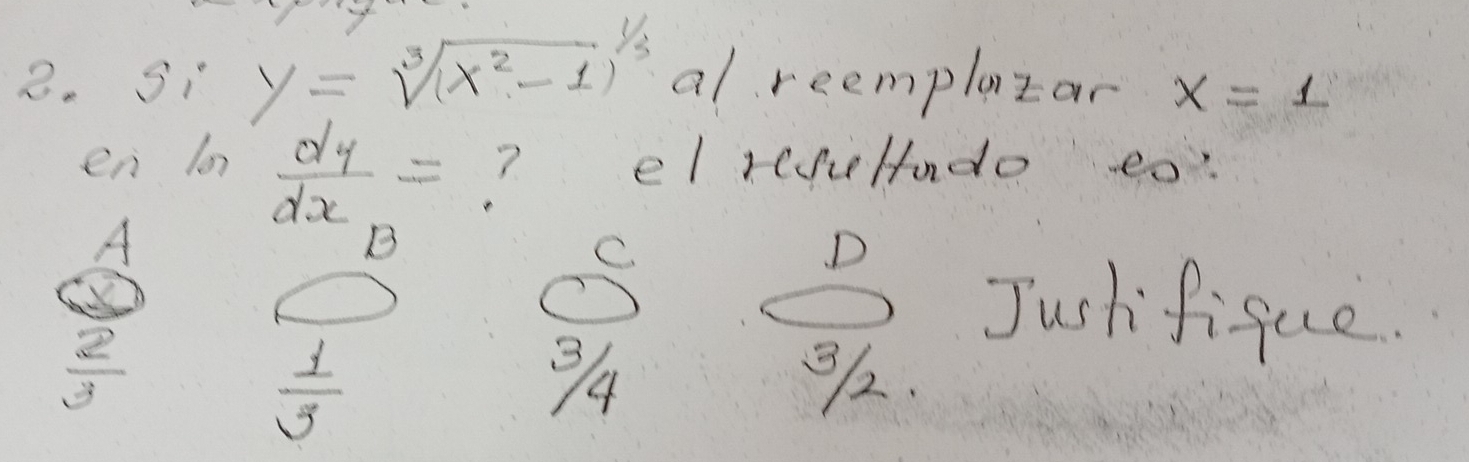 2. Si y = ∛(x² - 1)^1/3 al reemplazar x = 1
en la dy/dx = ? el resultado es:
A B C D
x Justifique.
2/3 1/3 3/4 3/2.